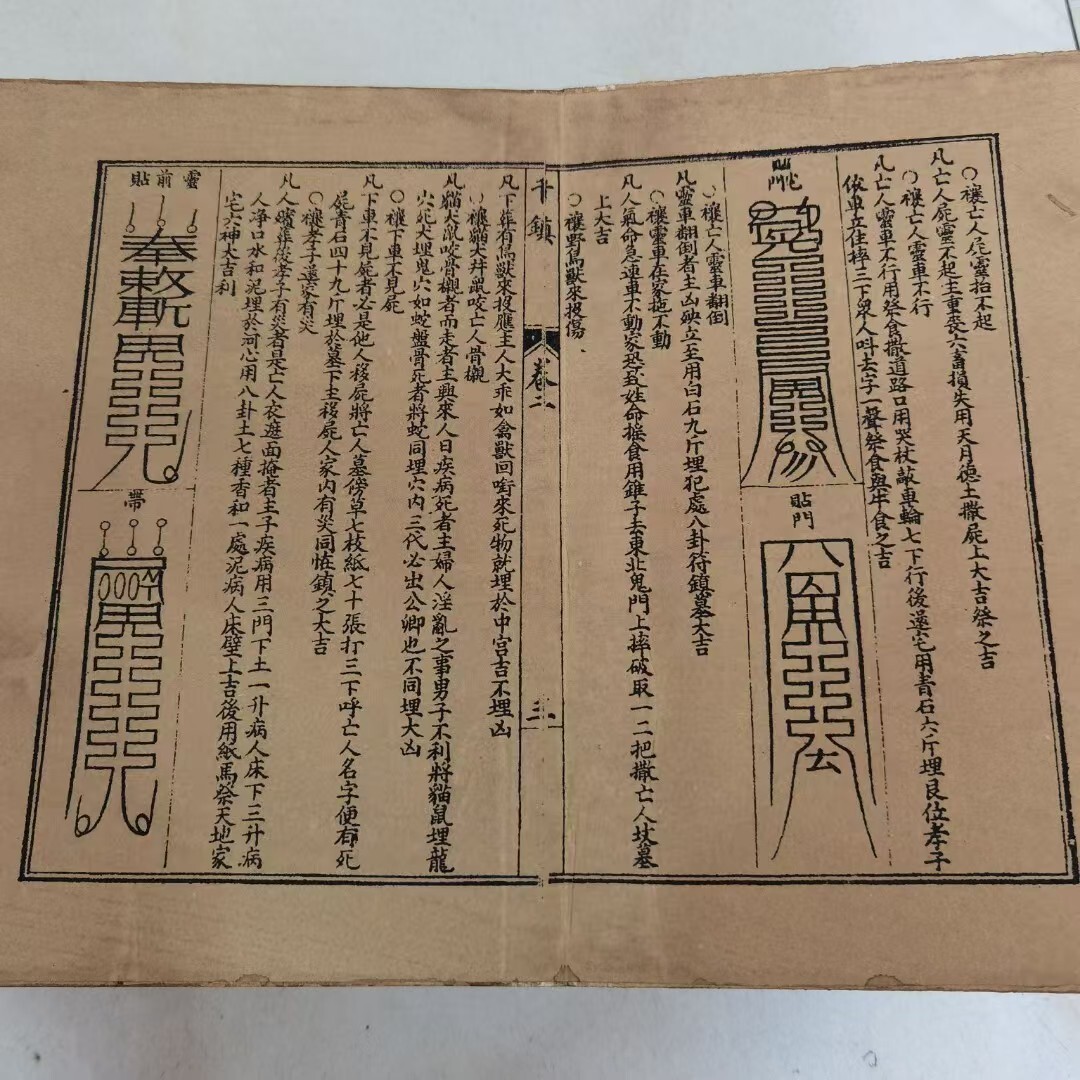 ○禳亡人屍靈抬不起
凡亡人屍靈不起主重喪六畜損失用天月德土撒屍上大吉祭之吉
○禳亡人靈車不行
凡亡人靈車不行用祭食撒道路口用哭杖敲車輪七下行後還宅用青石六斤埋艮位孝子
依車立住摔三下眾人呌去字一聲祭食與牛食之吉
貼門
○禳亡人靈車翻倒
凡靈車翻倒者主凶殃立至用白石九斤埋犯處八卦符鎮墓大吉
○禳靈車在家拖不動
凡人氣命急連車不動家恐致姓命𢳆食用錐子去東北鬼門上摔破取一二把撒亡人坟墓
上大吉
○禳野鳥獸來投傷
鎮
卷二
三
凡下葬有鳥獸來投應主人大乖如禽獸回啣來死物就埋於中宮吉不埋凶
○禳猫犬并鼠咬亡人骨襯
凡貓犬鼠咬骨襯者而走者主興來人日疾病死者主婦人淫亂之事男子不利將貓鼠埋龍
穴死犬埋鬼穴如蛇盤骨死者將蛇同埋穴內三代必出公卿也不同埋大凶
○禳下車不見屍
凡下車不見屍者必是他人移屍將亡人墓傍草七枝紙七十張打三下呼亡人名字便有死
屍青石四十九斤埋於墓下主移屍人家內有災同恠鎮之大吉
○禳孝子還家有災
凡人殯葬後孝子有災者是亡人衣遮面掩者主子疾病用三門下土一升病人床下三升病
人凈口水和泥埋於河心用八卦土七種香和一處泥病人床壁上吉後用紙馬祭天地家
宅六神大吉利
靈前貼
奉敕斬
帶